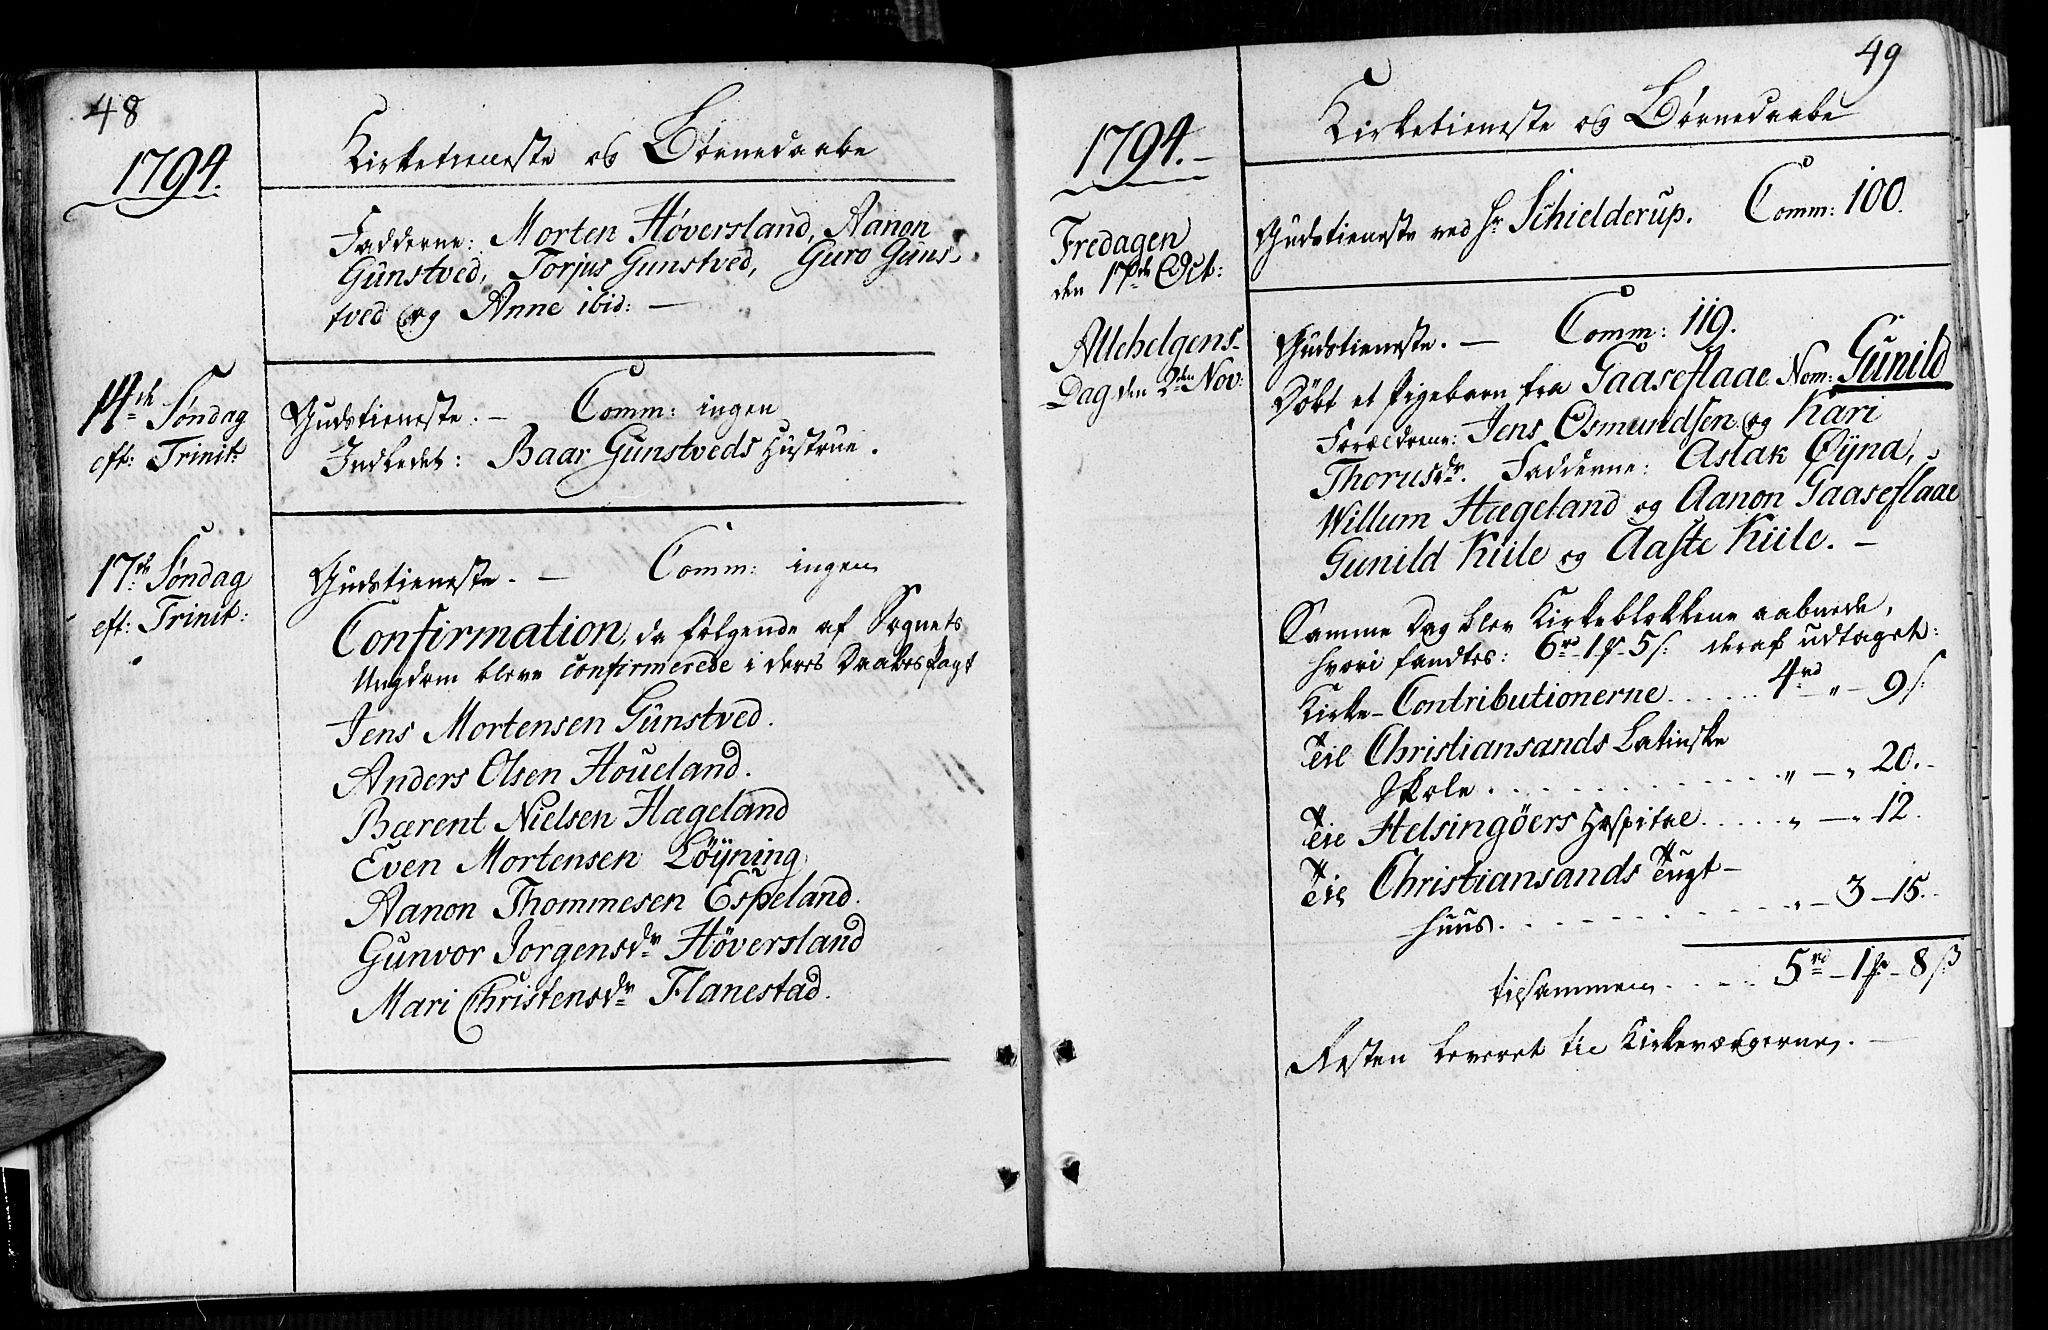 48
1794.
Kirketieneste og Børnedaabe
Fadderne: Morten Höversland, Aanon
Gunstved, Torjus Gunstved, Guro Guns-
tved og Anne ibid: —
14de Søndag
eft: Trinit:
Gudstieneste. — Comm: ingen
Indledet: Baar Gunstveds Hustrue.
17de Søndag
eft: Trinit:
Gudstieneste. — Comm: ingen
Confirmation, da følgende af Sognets
Ungdom bleve confirmerede i deres Daabes Pagt
Jens Mortensen Gunstved.
Anders Olsen Houeland.
Bærent Nielsen Hægeland
Even Mortensen Löÿning
Aanon Thommesen Espeland.
Gunvor Jorgensdr Höversland
Mari Christensdr Flanestad.
49
1794. —
Kirketieneste og Børnedaabe
Fredagen
den 17de Oct:
Gudstieneste ved Hr Schielderup. Comm: 100.
Allehelgens-
Dag den 2den Nov:
Gudstieneste. — Comm: 119.
Döbt et Pigebarn fra Gaaseflaae Nom: Gunild
Forældrene: Jens Osmundsen og Kari
Thorusdr. Fadderne: Aslak Öÿna,
Willum Hægeland og Aanon Gaaseflaae
Gunild Kiile og Aaste Kiile. —
Samme Dag blev Kirkeblokkene aabnede,
hvori fandtes: 6rd - 1f - 5s: deraf udtaget:
Kirke-Contributionerne . . . . . 4rd - " - 9s:
Til Christiansands Latinske
Skole . . . . . . . . . . " - " 20. -
Til Helsingöers Hospital . . . . . " - " 12.
Til Christiansands Tugt-
huus. . . . . . . . . . " - 3 - 15. -
tilsammen . . . . . 5rd - 1f - 8s
Resten leveret til Kirkeværgerne. —